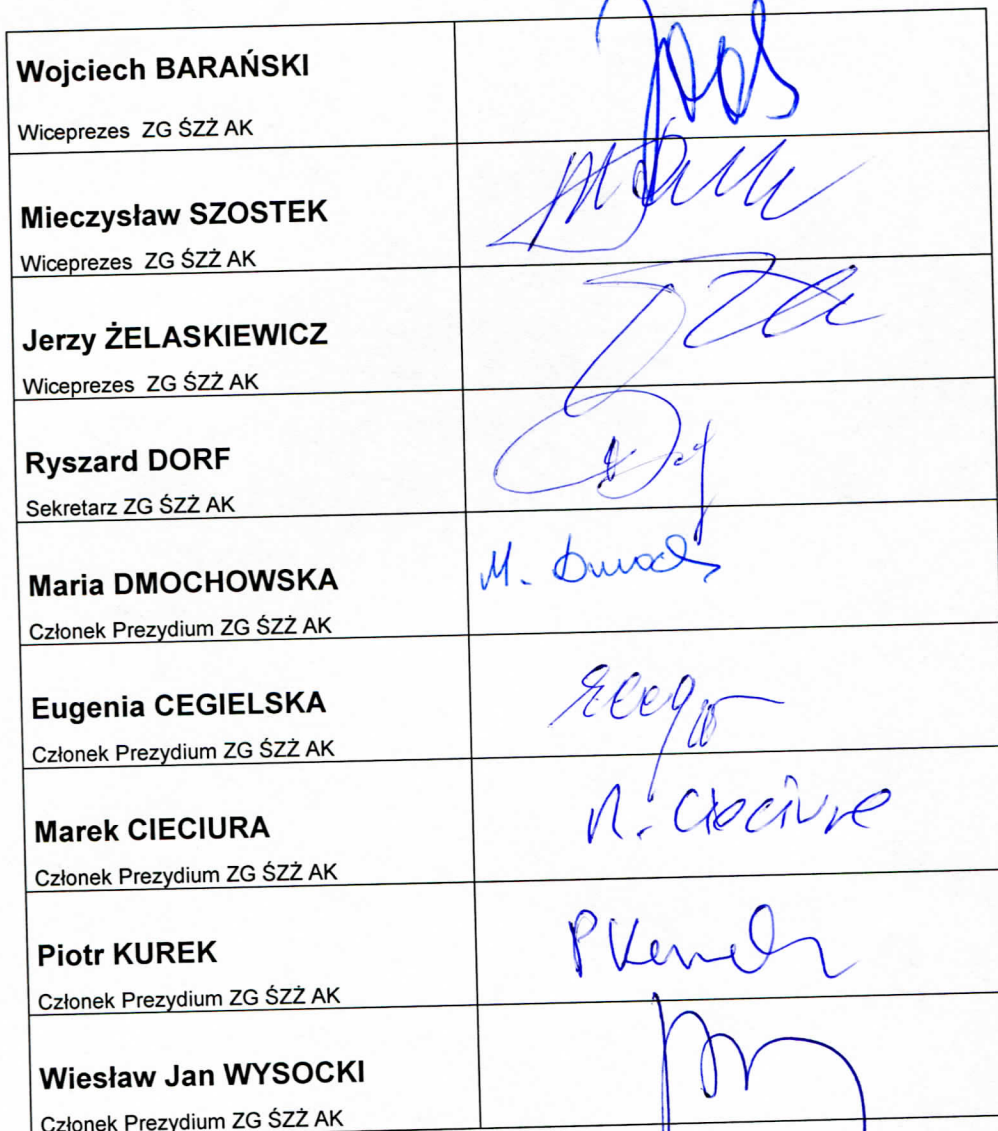 Wojciech BARAŃSKI
Wiceprezes ZG ŚZŻ AK
Mieczysław SZOSTEK
Wiceprezes ZG ŚZŻ AK
Jerzy ŻELASKIEWICZ
Wiceprezes ZG ŚZŻ AK
Ryszard DORF
Sekretarz ZG ŚZŻ AK
Maria DMOCHOWSKA
Członek Prezydium ZG ŚZŻ AK
Eugenia CEGIELSKA
Członek Prezydium ZG ŚZŻ AK
Marek CIECIURA
Członek Prezydium ZG ŚZŻ AK
Piotr KUREK
Członek Prezydium ZG ŚZŻ AK
Wiesław Jan WYSOCKI
Członek Prezydium ZG ŚZŻ AK